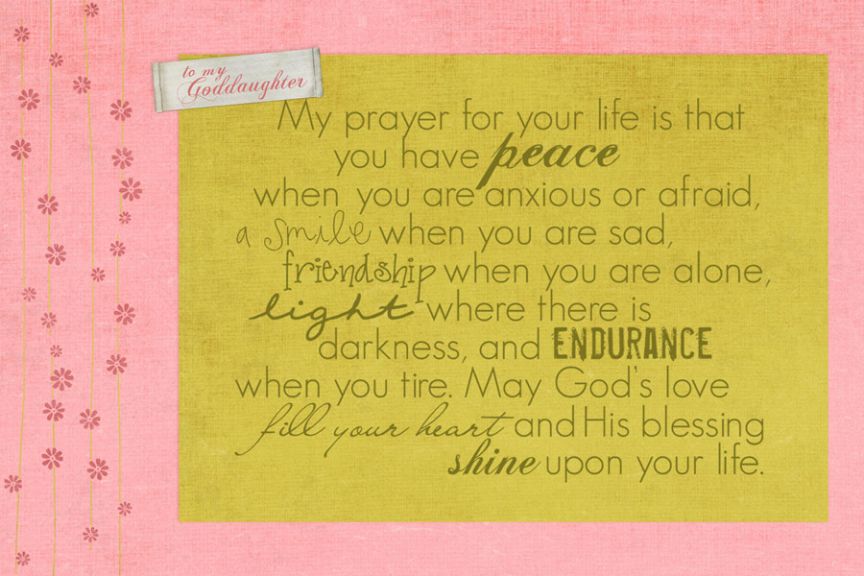 to my
Goddaughter
My prayer for your life is that
you have peace
when you are anxious or afraid,
a smile when you are sad,
friendship when you are alone,
light where there is
darkness, and ENDURANCE
when you tire. May God's love
fill your heart and His blessing
shine upon your life.